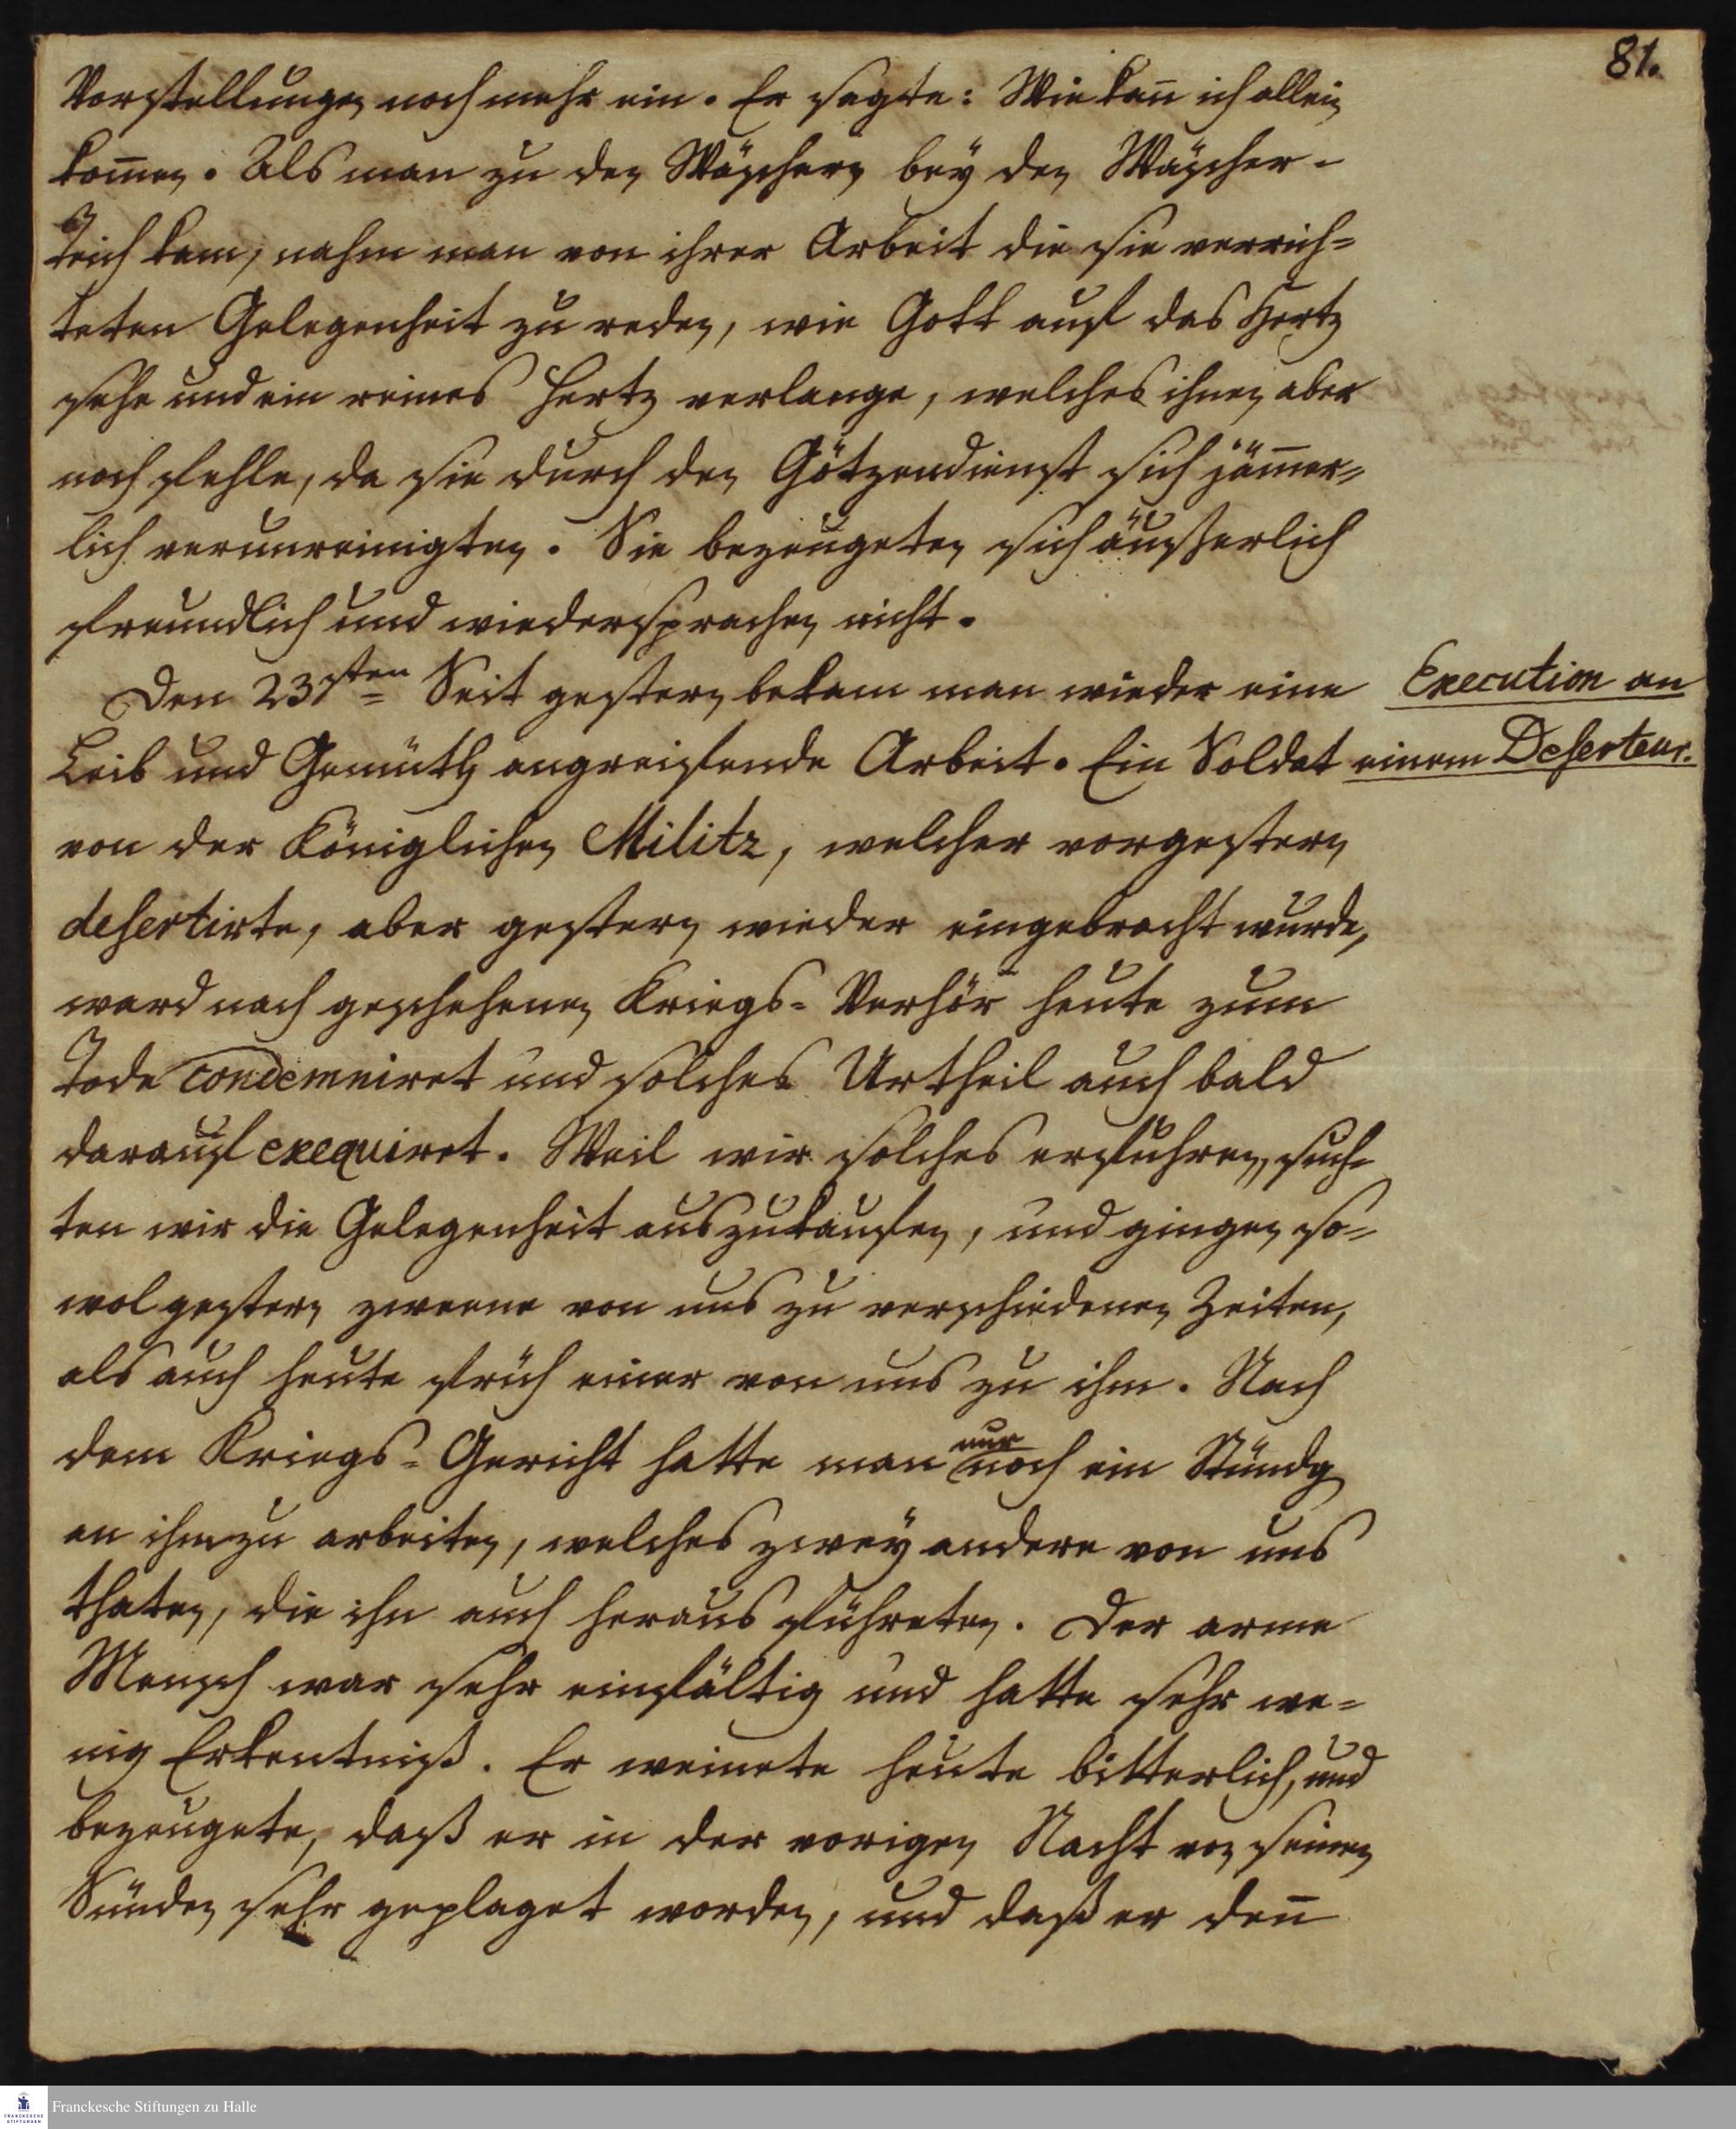 81.
Vorstellungen noch mehr ein. Er sagte: Wie kañ ich allein
kom̃en. Als man zu den Wäschern bey den Wäscher-
Teich kam, nahm man von ihrer Arbeit die sie verrich-
teten Gelegenheit zu reden, wie Gott auf das Hertz
sehe und ein reines Hertz verlange, welches ihnen aber
noch fehle, da sie durch den Götzendienst sich jäm̃er-
lich verunreinigten. Sie bezeugeten sich äußerlich
freundlich und wiedersprachen nicht.
Den 23sten Seit gestern bekam man wieder eine
Execution an
Leib und Gemüth angreifende Arbeit. Ein Soldat
einem Deserteur.
von der Königlichen Militz, welcher vorgestern
desertirte, aber gestern wieder eingebracht wurde,
ward nach geschehenen Kriegs-Verhör heute zum
Tode condemniret und solches Urtheil auch bald
darauf exequiret. Weil wir solches erfuhren, such-
ten wir die Gelegenheit auszukaufen, und gingen so-
wol gestern zweene von uns zu verschiedenen Zeiten,
als auch heute früh einer von uns zu ihm. Nach
dem Kriegs-Gericht hatte man nur noch ein Stündg
an ihm zu arbeiten, welches zwey andere von uns
thaten, die ihn auch heraus führeten. Der arme
Mensch war sehr einfältig und hatte sehr we-
nig Erkentniß. Er weinete heute bitterlich, und
bezeugete, daß er in der vorigen Nacht von seinen
Sünden sehr geplaget worden, und daß er deñ
Franckesche Stiftungen zu Halle
FRANCKESCHE
STIFTUNGEN